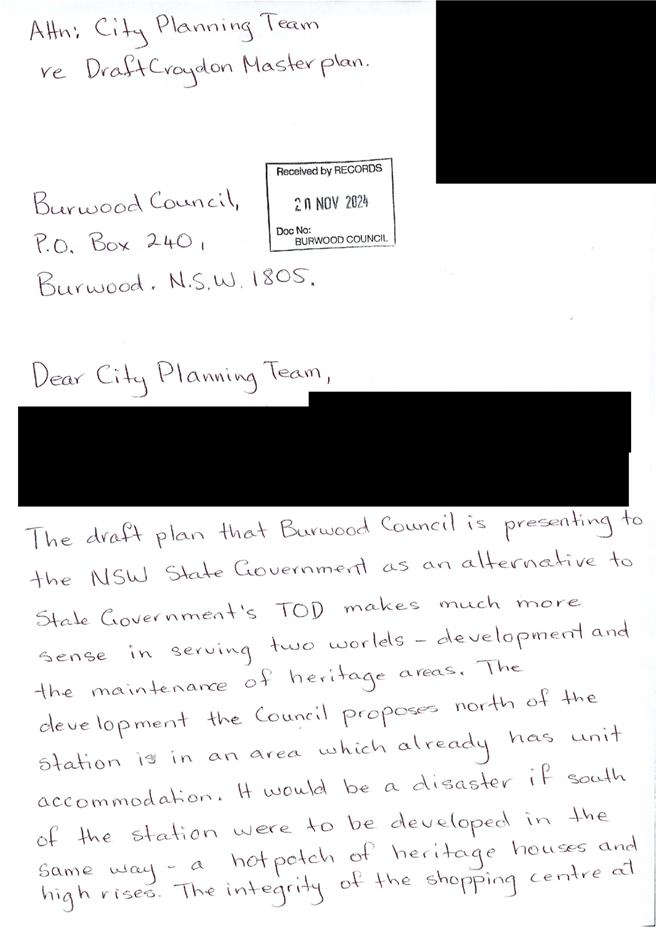 Attn: City Planning Team
re Draft Croydon Masterplan.
Received by RECORDS
20 NOV 2024
Doc No:
BURWOOD COUNCIL
Burwood Council,
P.O. Box 240,
Burwood. N.S.W. 1805.
Dear City Planning Team,
The draft plan that Burwood Council is presenting to
the NSW State Government as an alternative to
State Government's TOD makes much more
sense in serving two worlds - development and
the maintenance of heritage areas. The
development the Council proposes north of the
station is in an area which already has unit
accommodation. It would be a disaster if south
of the station were to be developed in the
same way - a hotpotch of heritage houses and
high rises. The integrity of the shopping centre at